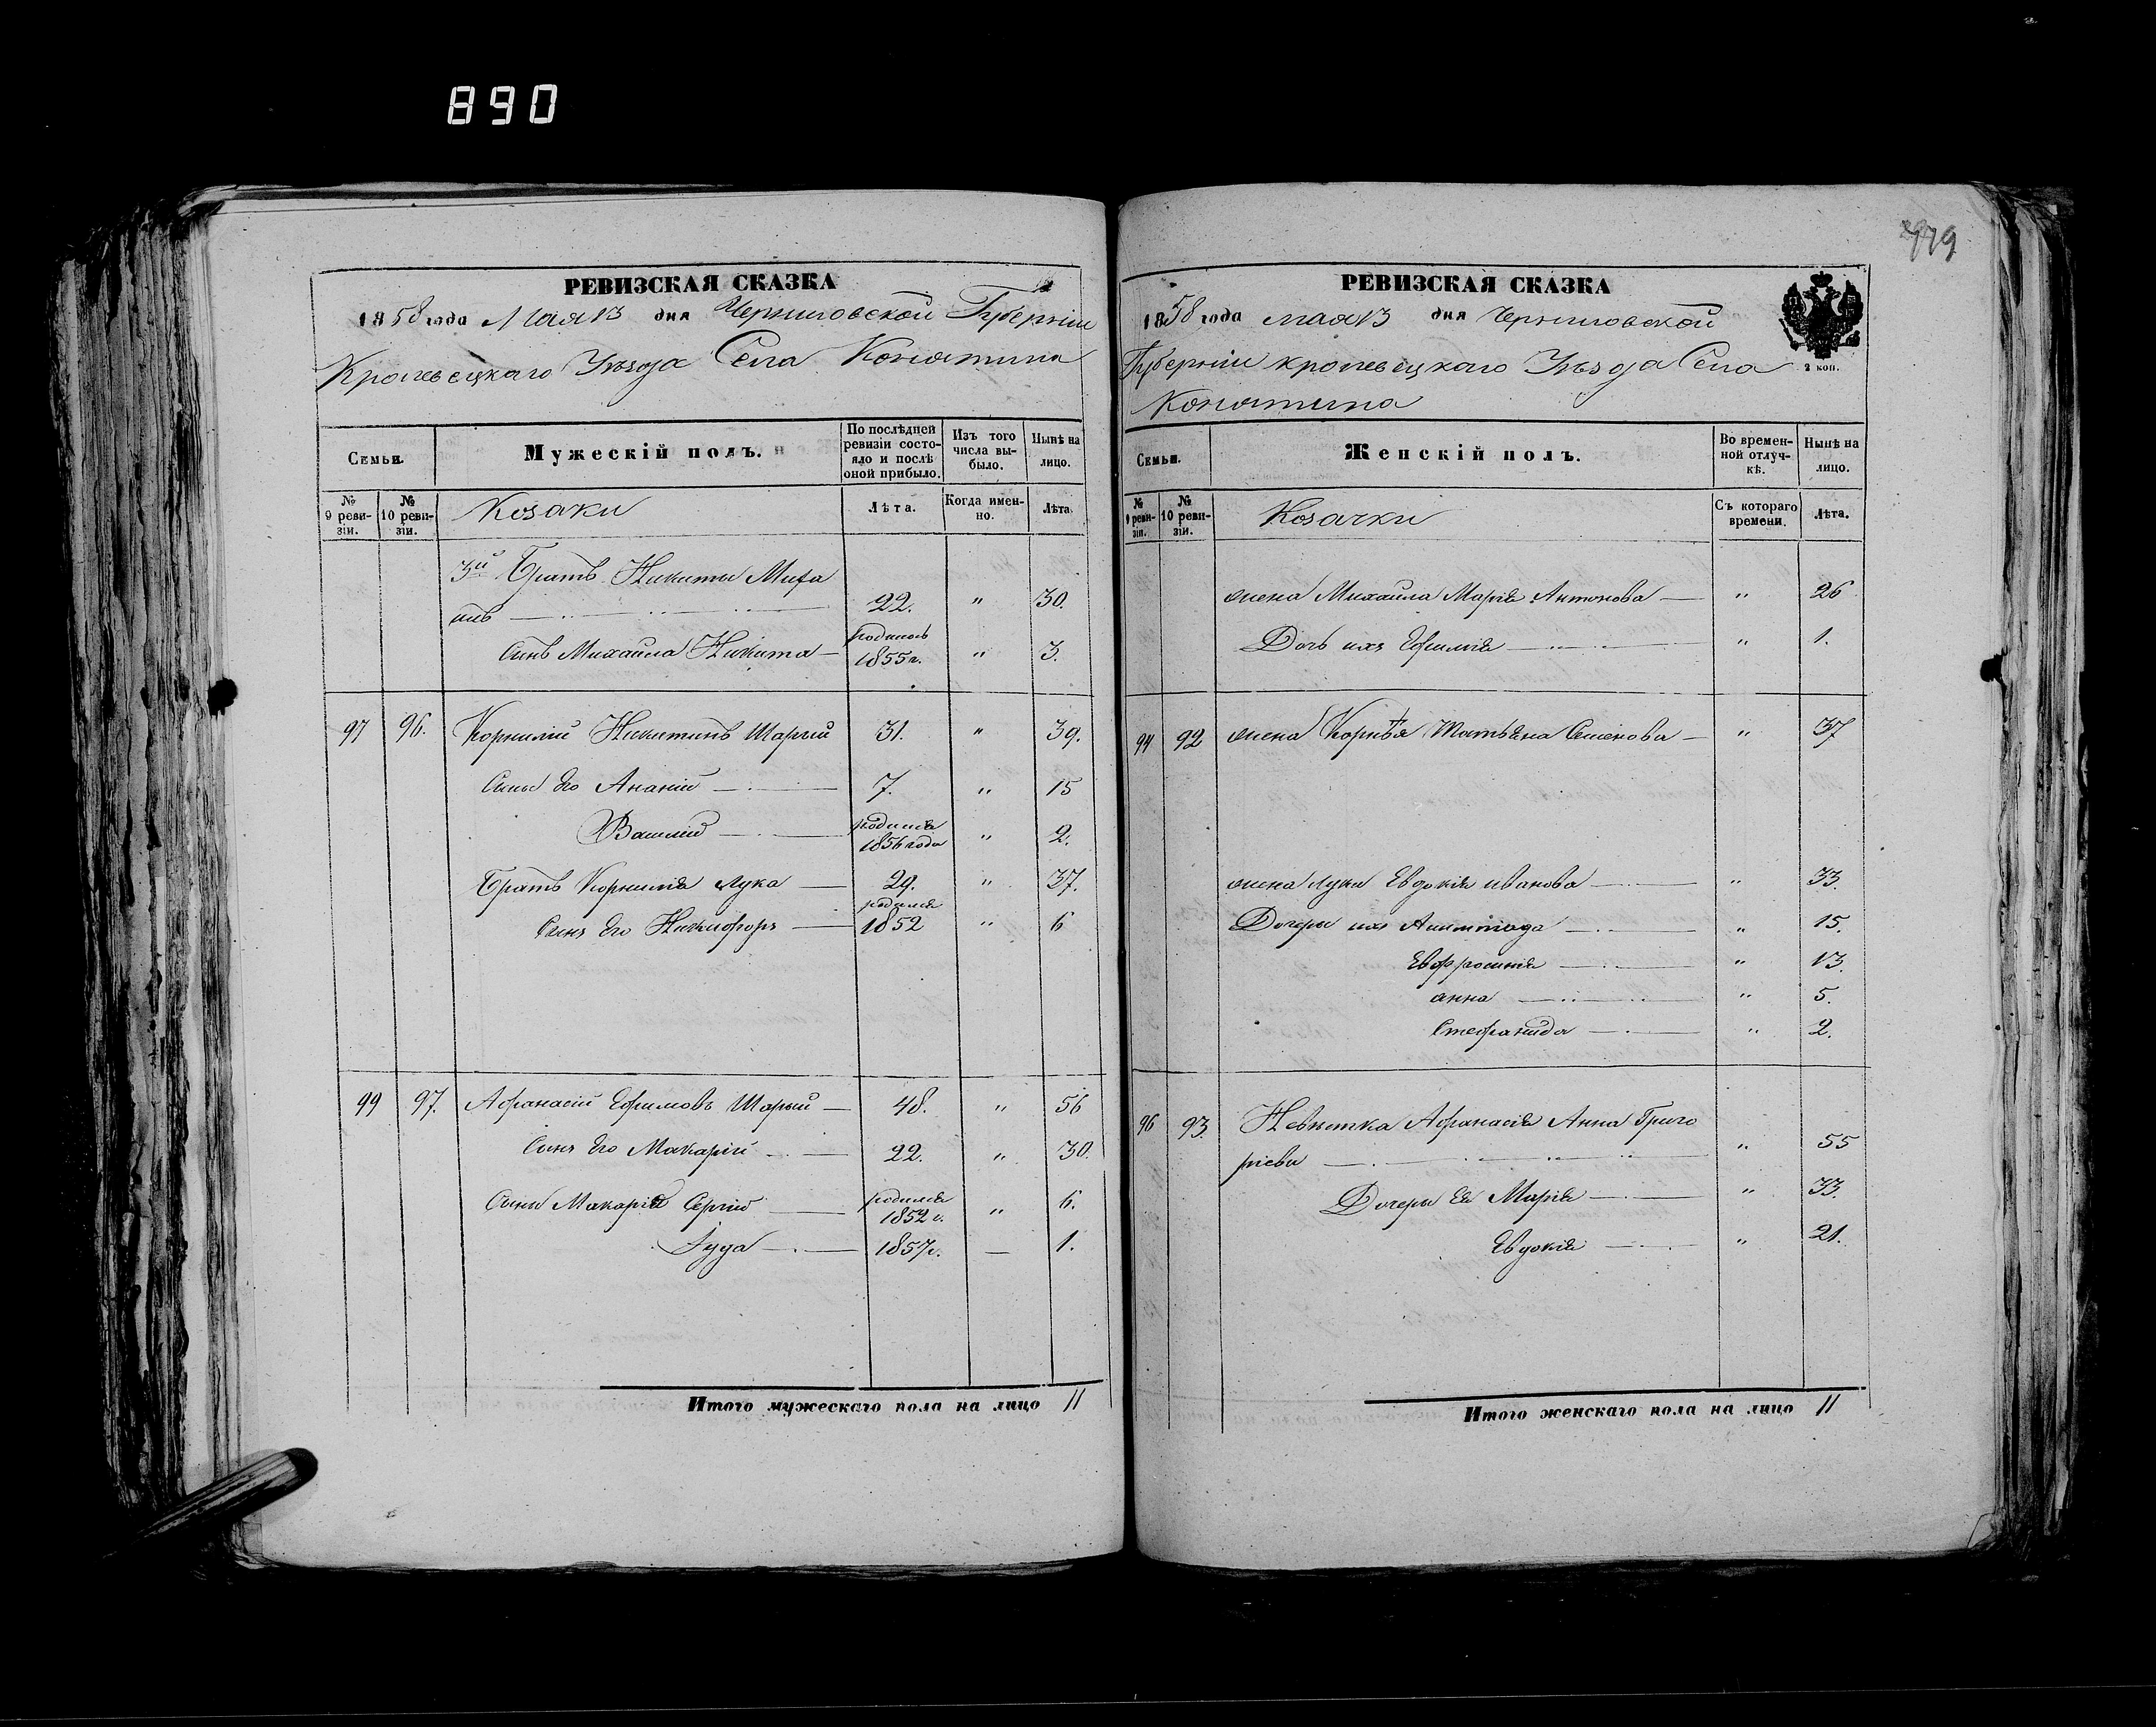 890
РЕВИЗСКАЯ СКАЗКА
1858 года Мая 13 дня Черниговской Губерніи
Кролевецкаго Уѣзда Села Конятина
Семьи.
Мужескій полъ.
По послѣдней ревизіи состояло и послѣ оной прибыло.
Изъ того числа выбыло.
Нынѣ на лицо.
№ 9 ревизіи.
№ 10 ревизіи.
Козаки
Лѣта.
Когда именно.
Лѣта.
3й Братъ Никиты Миха
илъ 22. " 30.
Сынъ Михаила Никита родился 1855 г. " 3.
97 96. Корнилій Никитинъ Шарый 31. " 39.
Сыны Его Ананій 7. " 15
Василій родился 1856 года " 2.
Братъ Корнилія Лука 29. " 37.
Сынъ Его Никифоръ родился 1852 " 6
99 97. Афанасій Ефимовъ Шарый 48. " 56
Сынъ Его Макарій 22. " 30.
Сыны Макарія Сергій родился 1852 г. " 6.
Іуда 1857 г. — 1.
Итого мужескаго пола на лицо 11
779
РЕВИЗСКАЯ СКАЗКА
1858 года мая 13 дня Черниговской
Губерніи Кролевецкаго Уѣзда Села
Конятина
2 коп.
Семьи.
Женскій полъ.
Во временной отлучкѣ.
Нынѣ на лицо.
№ 9 ревизіи.
№ 10 ревизіи.
Козачки
Съ котораго времени.
Лѣта.
жена Михаила Марія Антонова " 26
Дочь ихъ Ефимія " 1.
94 92 жена Корнѣя Татьяна Семенова " 37
жена Луки Евдокія иванова " 33
Дочери ихъ " 15.
Евфросинія " 13.
анна " 5.
Стефанида " 2.
96 93. Невѣстка Афанасія Анна Григо
ріева " 55
Дочери Ея Марія " 33.
Евдокія " 21.
Итого женскаго пола на лицо 11